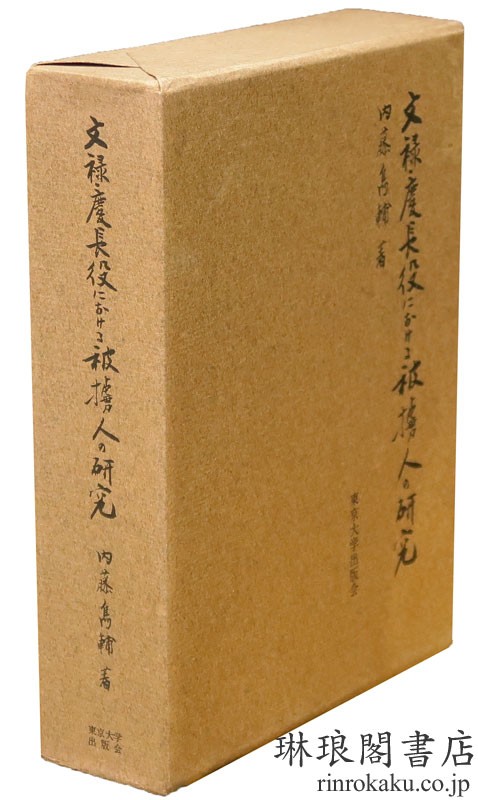 文禄・慶長役における被擄人の研究
内藤雋輔 著
東京大学
出版会
文禄・慶長役における被擄人の研究
内藤雋輔 著
東京大学出版会
琳琅閣書店
rinrokaku.co.jp